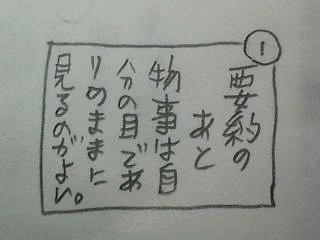 ①
要約の
あと
物事は自
分の目であ
りのままに
見るのがよい。